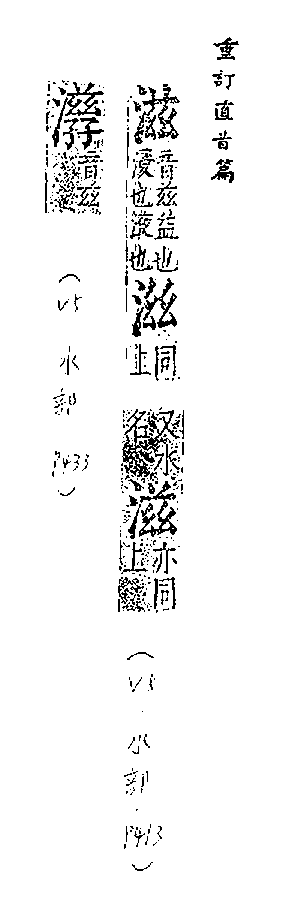 重訂直音篇
滋音兹益也浸也液也滋同上又水名滋亦同上(V5.水部.P413)
音兹(V5 水部 P433)